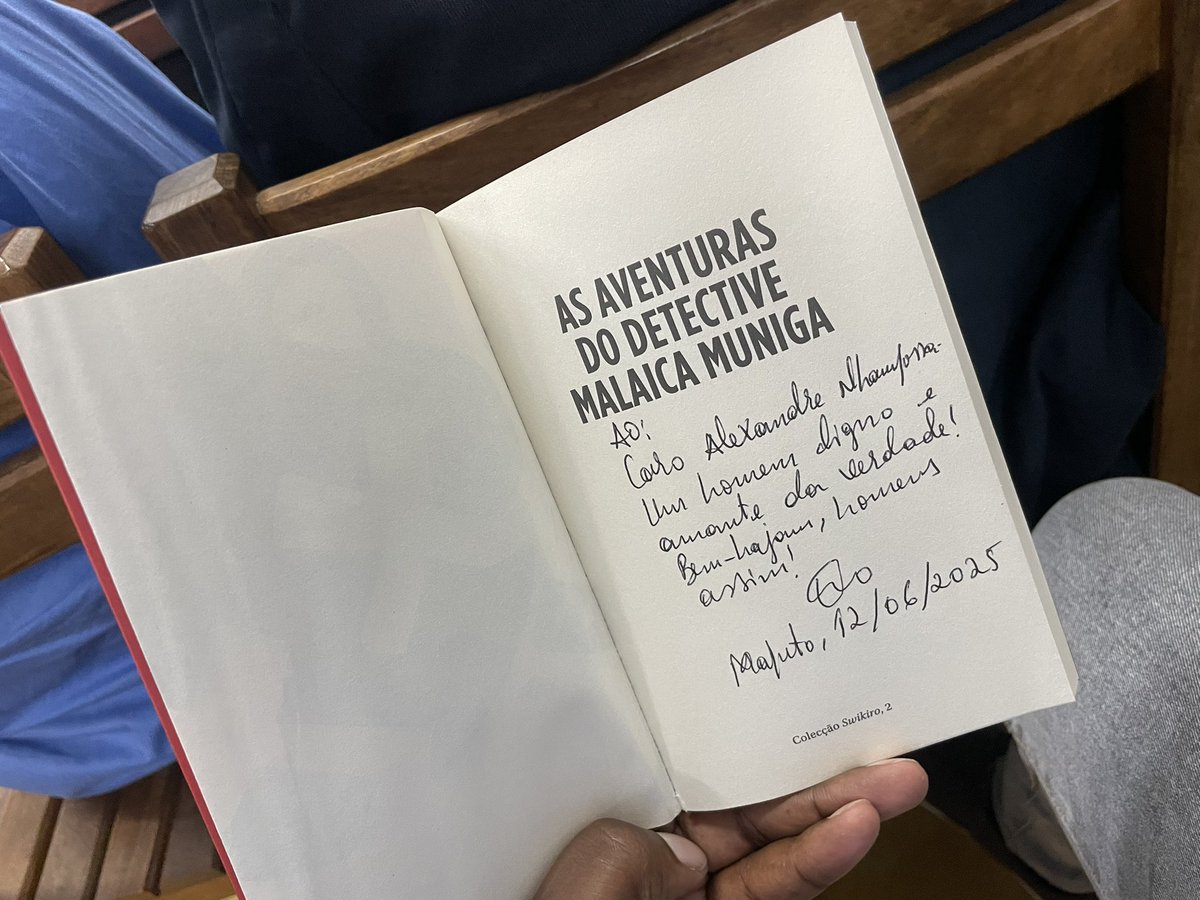 AS AVENTURAS
DO DETECTIVE
MALAICA MUNIGA
Ao:
Caro Alexandre Nhampossa-
Um homem digno e
amante da verdade!
Bem-hajam, homens
assim!
Maputo, 12/06/2025
Colecção Swikiro, 2